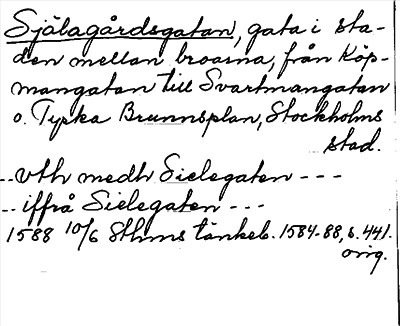 Själagårdsgatan, gata i sta-
den mellan broarna, från Köp-
mangatan till Svartmangatan
o. Tyska Brunnsplan, Stockholms
stad.
..vth medh Sielegaten ---
..iffrå Sielegaten ---
1588 10/6 Sthms tänkeb. 1584-88, s. 441.
orig.